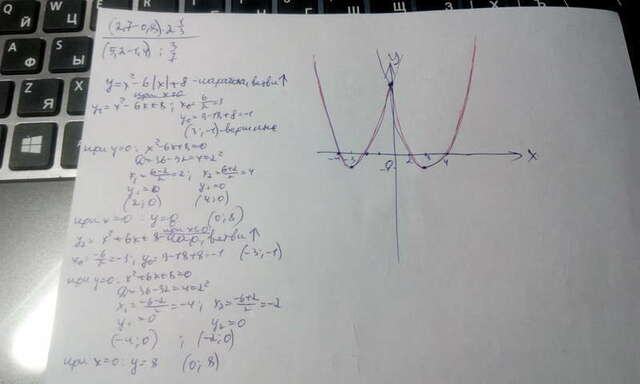 (2,7-0,8)·2 1/3
(5,2-1,4) : 3/7
y=x²-6|x|+8 - парабола, ветви ↑
при x≥0
y₁=x²-6x+8; x₀=6/2=3
y₀=9-18+8=-1
(3;-1)-вершина
при y=0: x²-6x+8=0
D=36-32=4=2²
x₁=(6-2)/2=2; x₂=(6+2)/2=4
y₁=0 y₂=0
(2;0) (4;0)
при x=0: y=0 (0;8)
при x<0
y₂=x²+6x+8 ветви ↑
x₀=-6/2=-3; y₀=9-18+8=-1 (-3;-1)
при y=0: x²+6x+8=0
D=36-32=4=2²
x₁=(-6-2)/2=-4; x₂=(-6+2)/2=-2
y₁=0 y₂=0
(-4;0) ; (-2;0)
при x=0: y=8 (0;8)
y
x
-4 -3
3 4
Q
Ф
Я